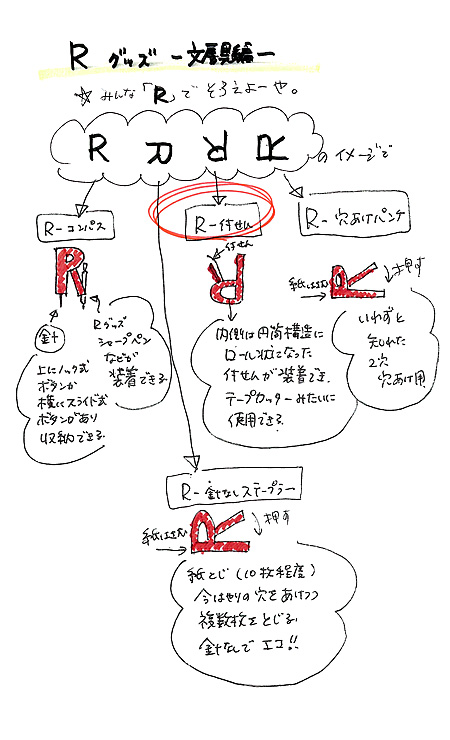 R グッズ －文房具編－
☆ みんな「R」で そろえよーや。
R R R R のイメージで
R－コンパス
R－付せん
R－穴あけパンチ
付せん
紙はさむ
押す
針
Rグッズ
シャープペン
などが
装着できる
上にノック式
ボタンか
横にスライド式
ボタンがあり
収納できる
内側は円筒構造に
ロール状になった
付せんが装着でき
テープカッターみたいに
使用できる
いわずと
しれた
2穴
穴あけ用
R－針なしステープラー
紙はさむ
押す
紙とじ（10枚程度）
今はやりの穴をあけつつ
複数枚をとじる
針なしで エコ!!